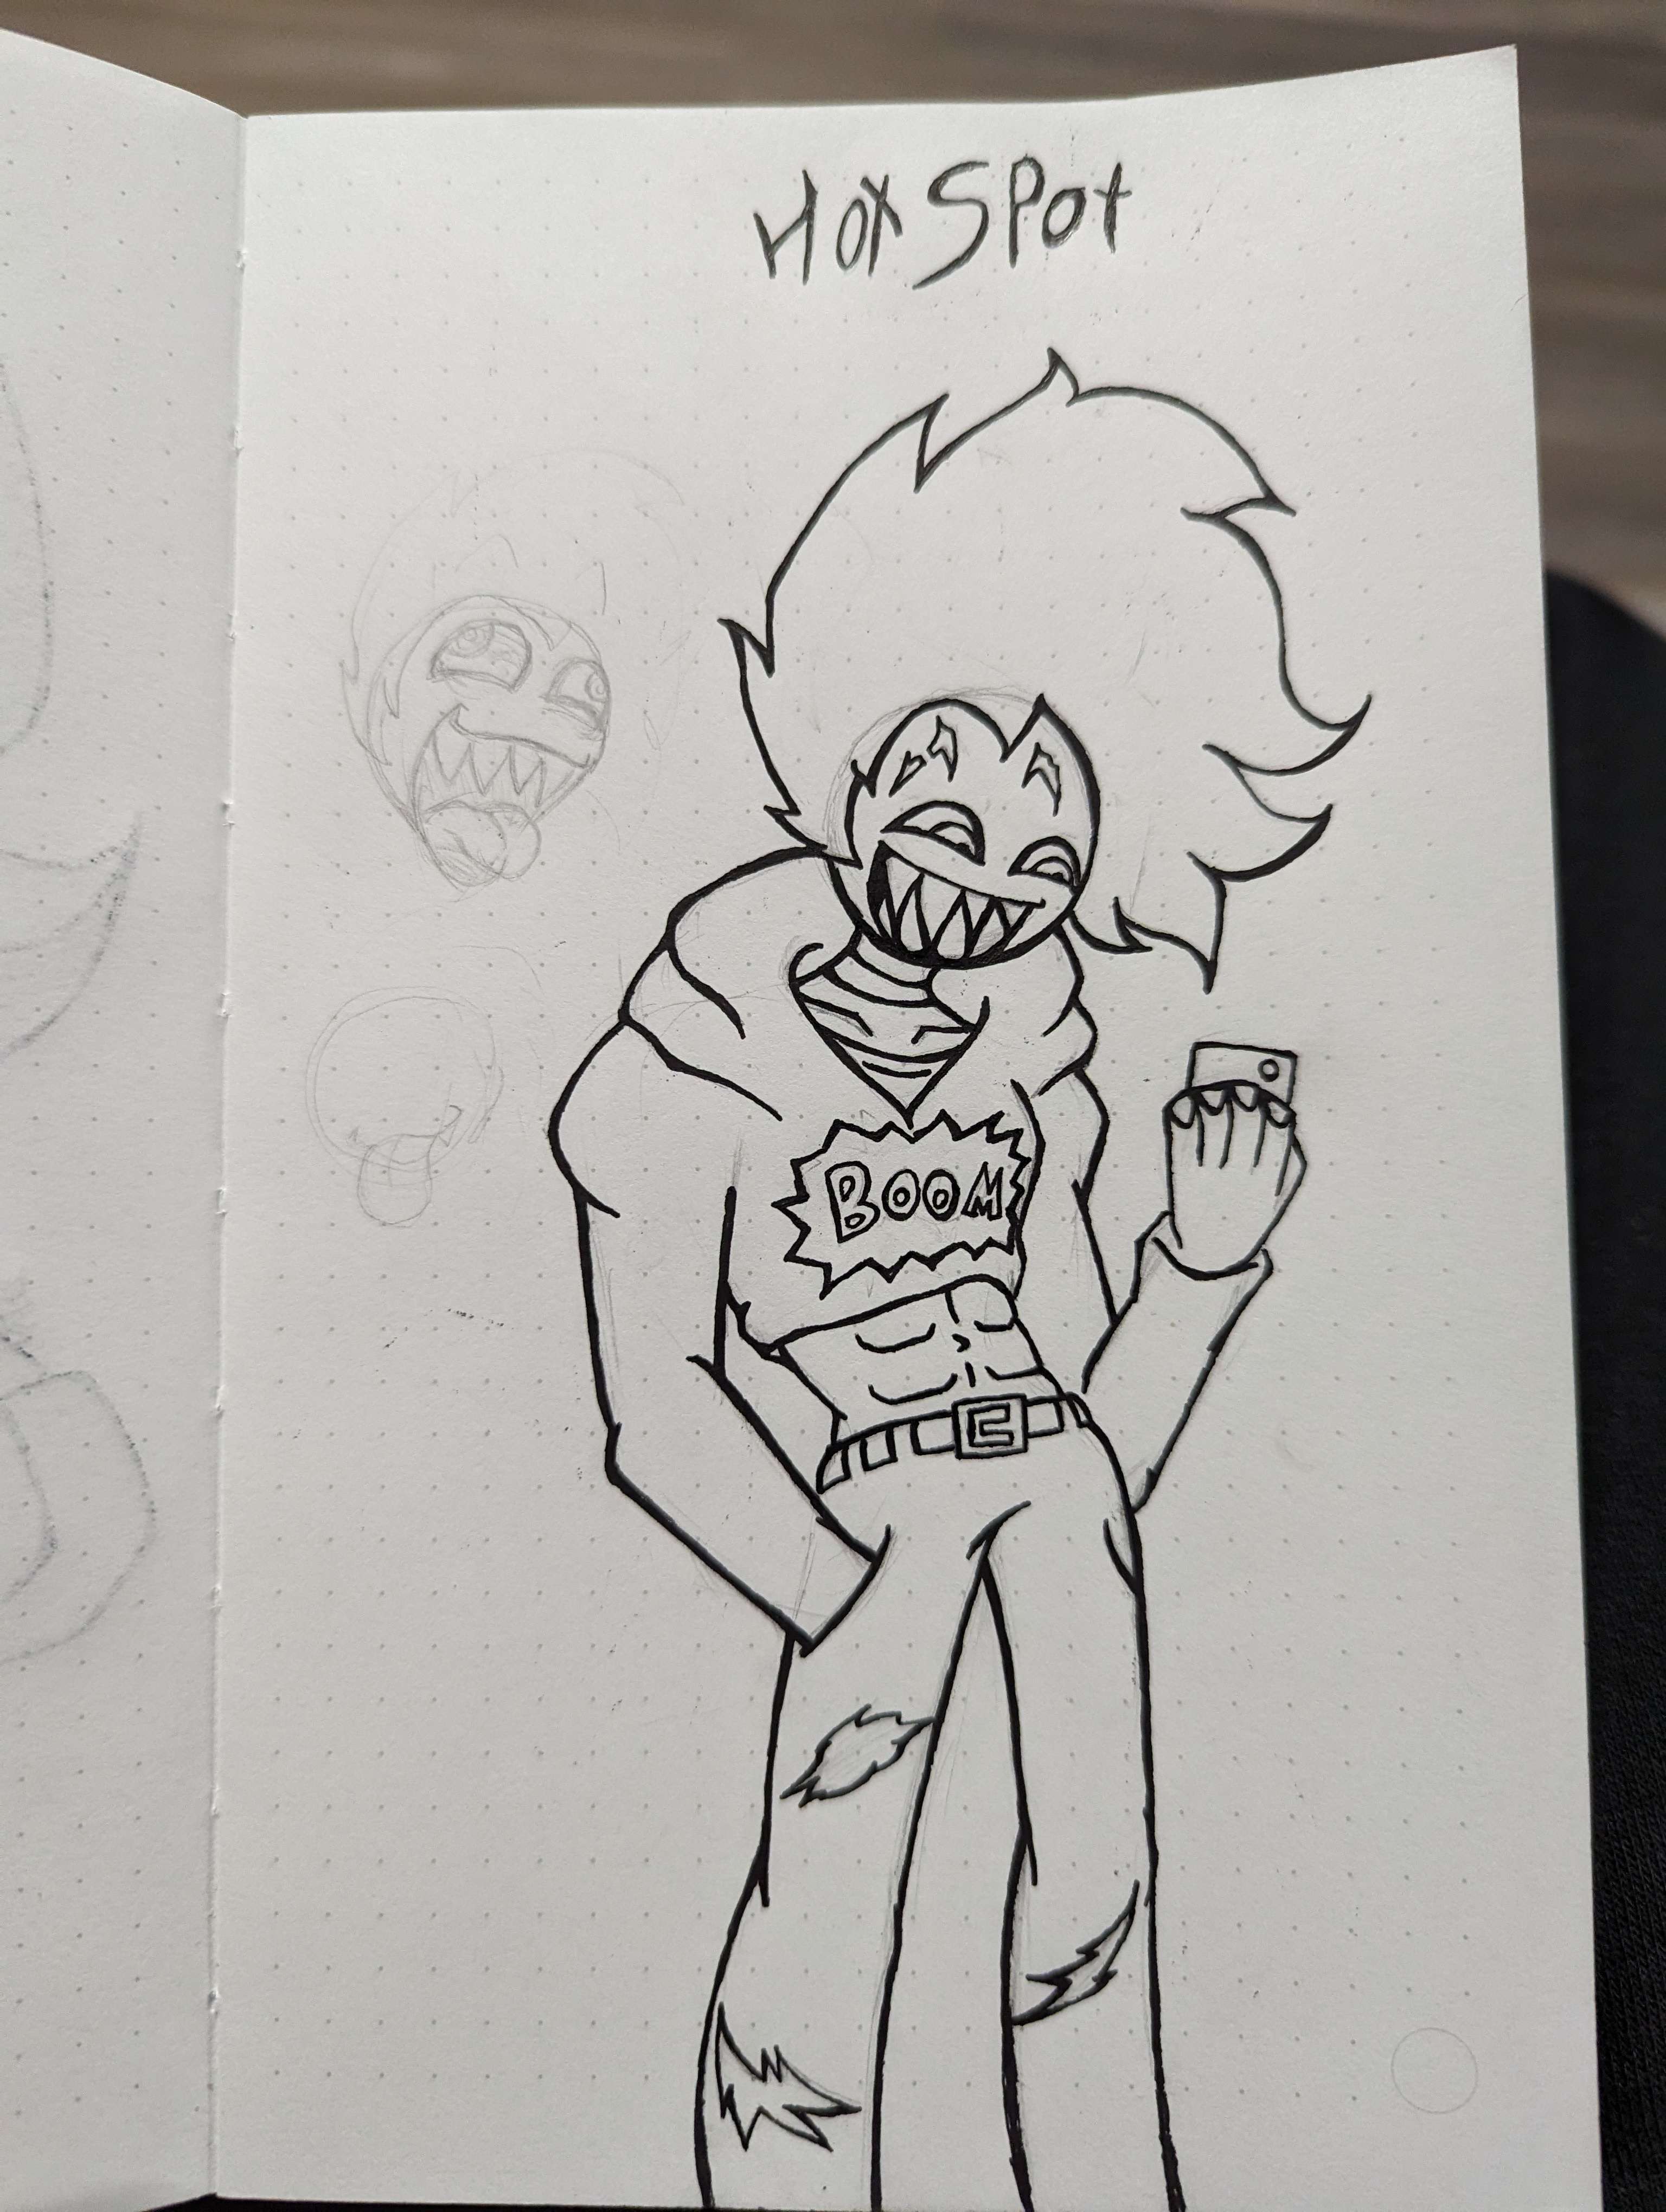 Hot Spot
BOOM